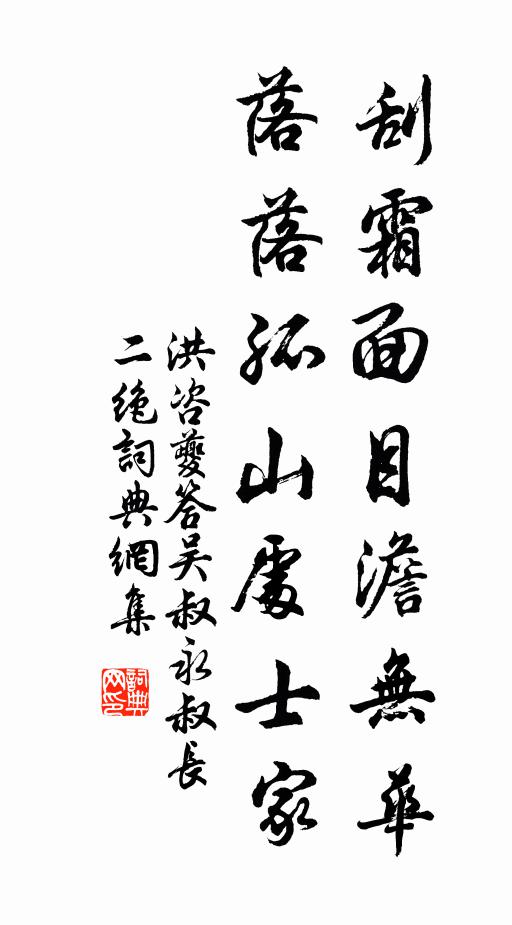 刮霜面目澹無華
落落孤山處士家
洪咨夔答吴叔永叔長
二絶詞典網集
詞典网印